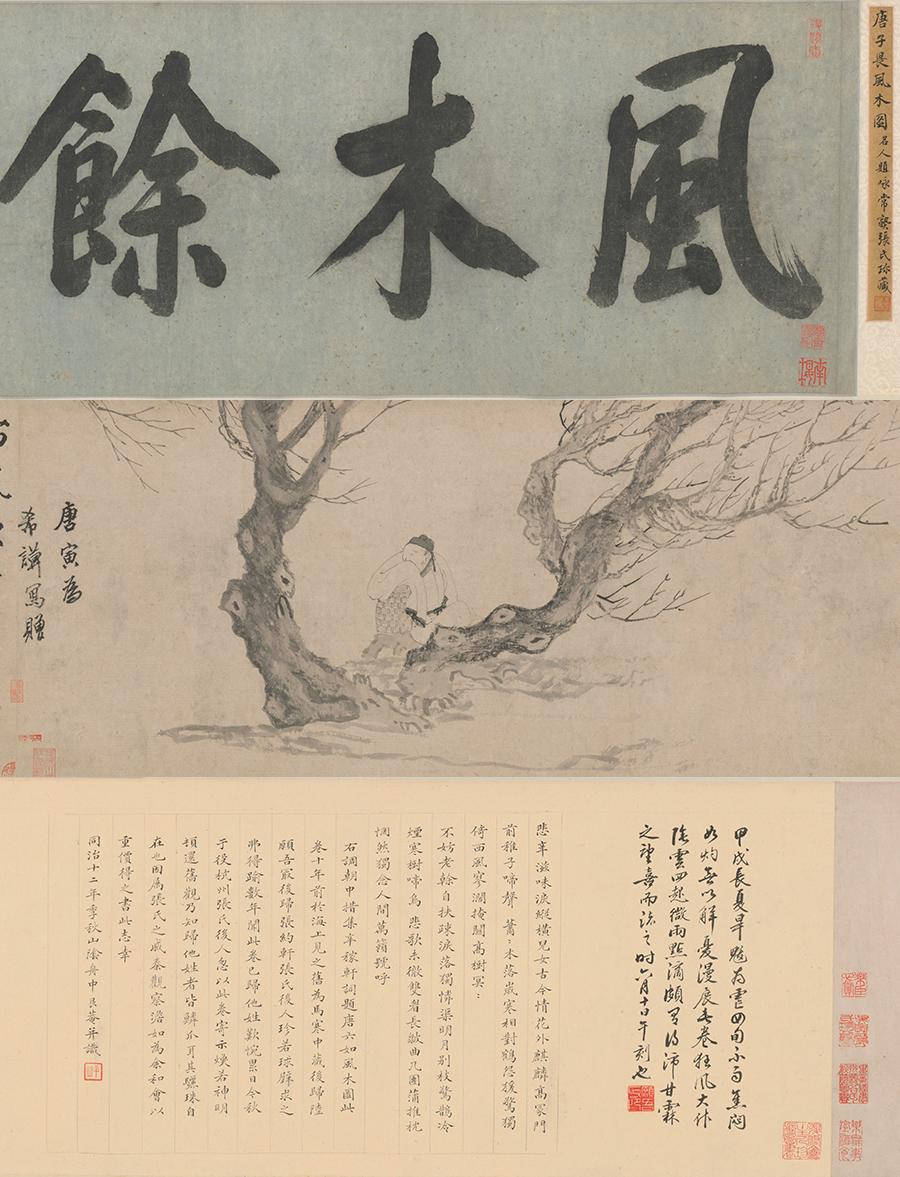 唐子畏風木圖名人題咏常熟張氏珍藏
風木餘
唐寅為
希謙寫贈
甲戌長夏旱魃為虐四旬不雨焦悶
如灼無以解憂漫展此卷狂風大作
陰雲四起微雨點滴頗有得沛甘霖
之望喜而誌之時六月十日午刻也
悲辛滋味淚縱橫兒女古今情花外麒麟高冢門
前稚子啼聲 蕭蕭木落歲寒相對鶴怨猨驚獨
倚西風寥濶掩關高樹冥冥
不妨老榦自扶疎淚落獨憐渠明月別枝驚鵲冷
煙寒樹啼烏 悲歌未徹雙眉長皺曲几團蒲推枕
惘然獨念人間萬籟號呼
右調朝中措集辛稼軒詞題唐六如風木圖此
卷十年前於海上見之舊為馬寒中藏後歸陸
頤吾最後歸張約軒張氏後人珍若球璧求之
弗得踰數年聞此卷已歸他姓歎惋累日今秋
于役杭州張氏後人忽以此卷寄示煥若神明
頓還舊觀乃知歸他姓者皆鱗爪耳其驪珠自
在也因屬張氏之戚秦觀察澹如為余和會以
重價得之書此志幸
同治十二年季秋山陰舟中艮菴并識